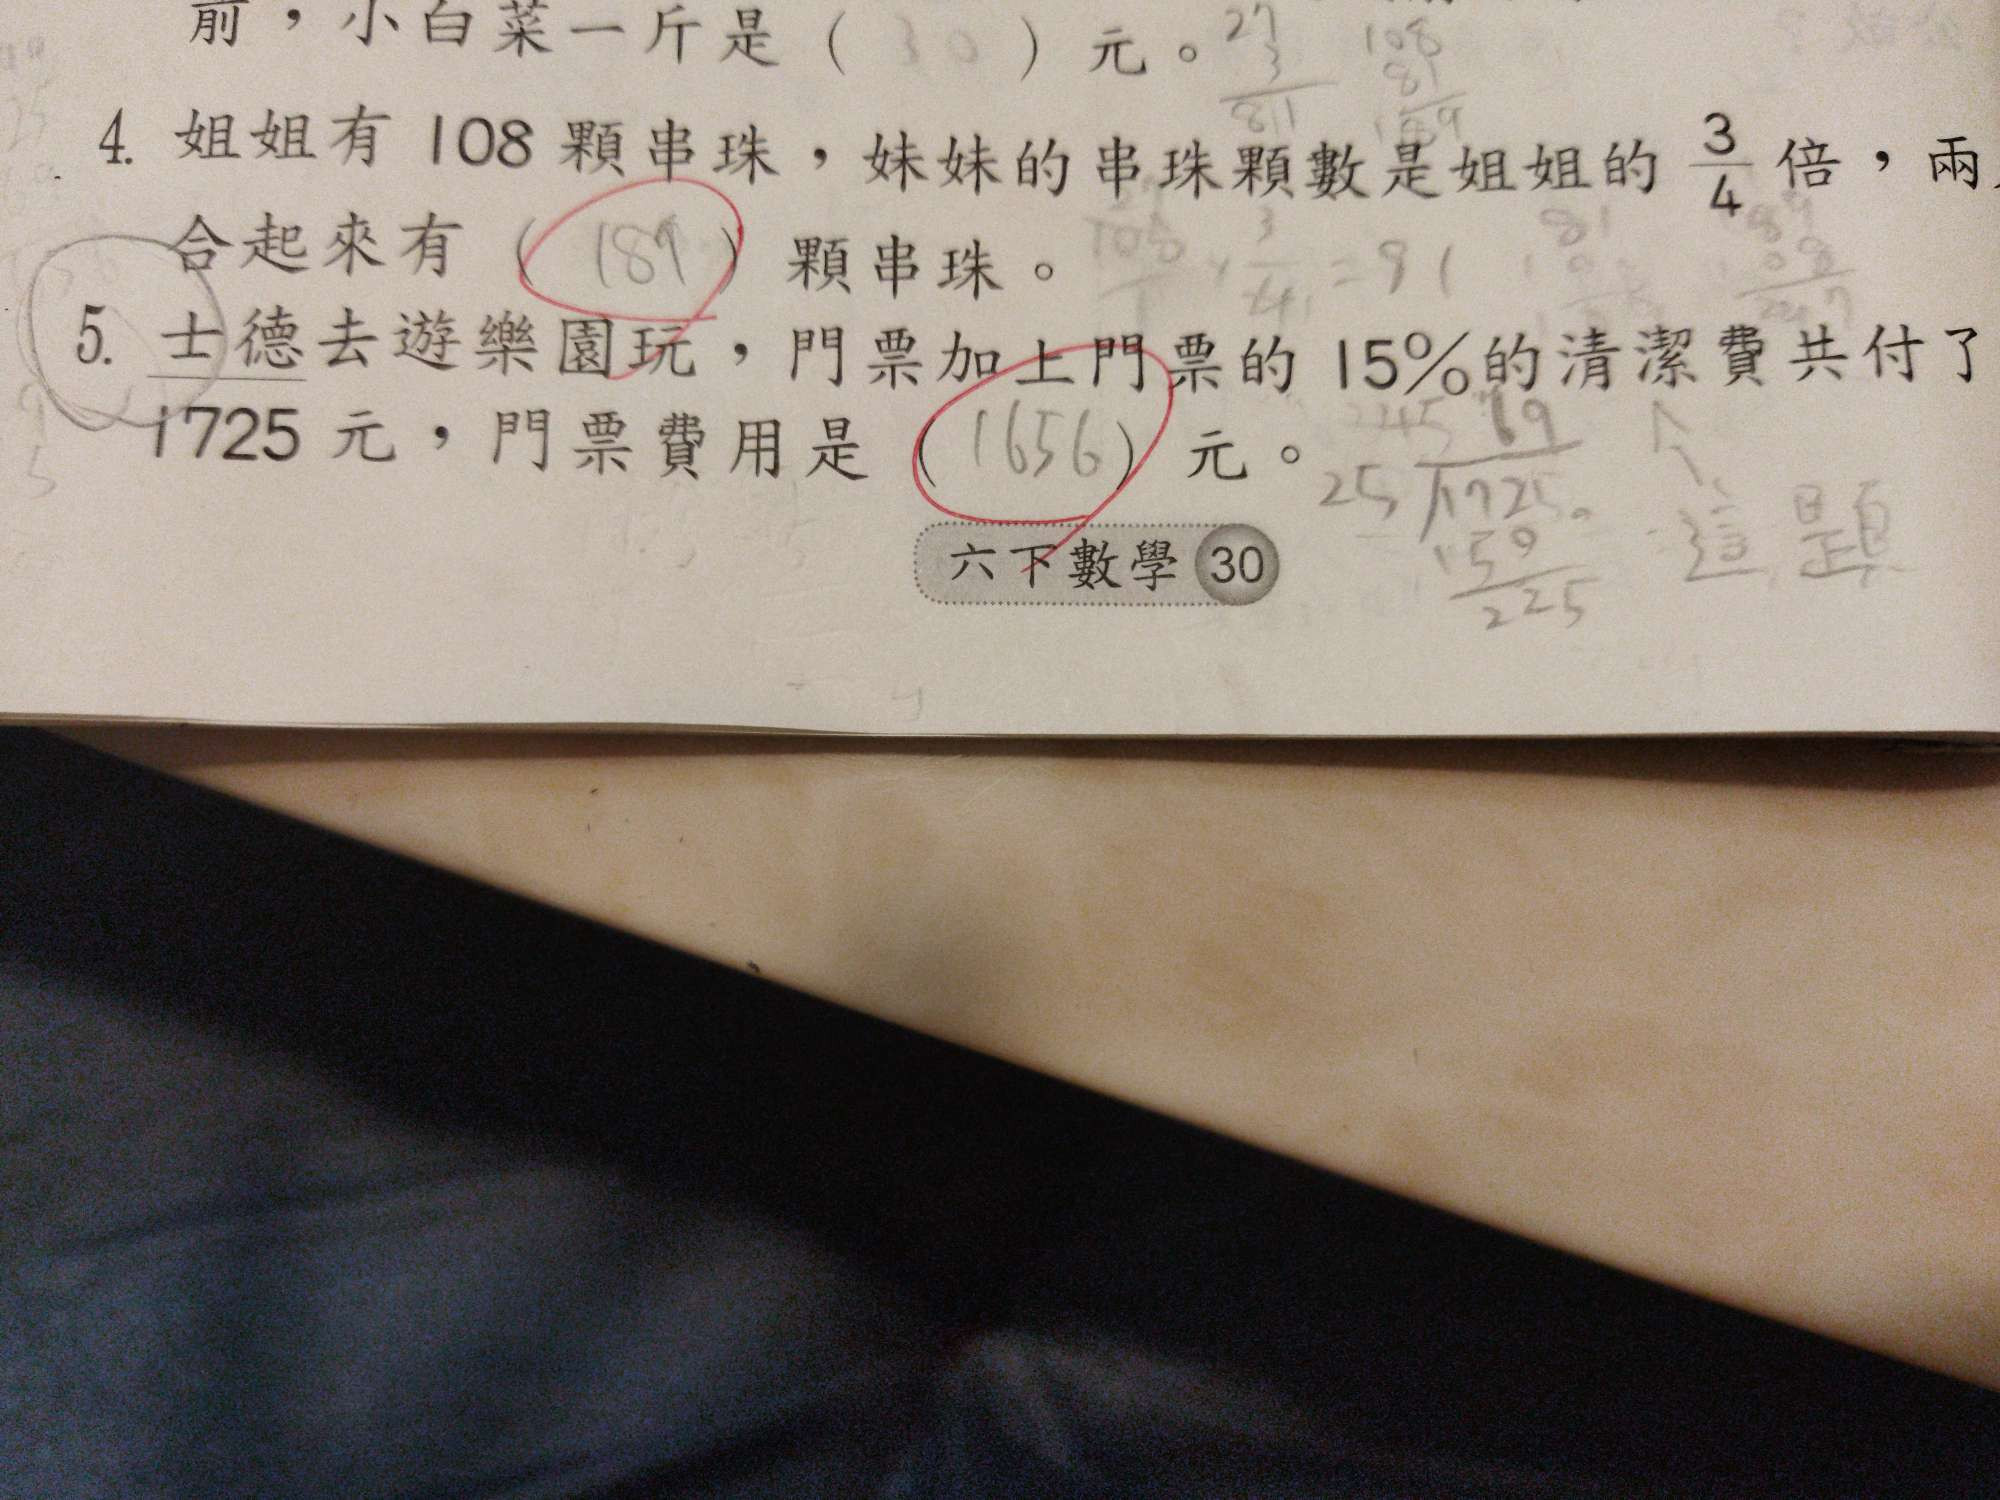 前，小白菜一斤是（30）元。
27
3
811
108
81
189
4. 姐姐有 108 顆串珠，妹妹的串珠顆數是姐姐的 3/4 倍，兩
合起來有（189）顆串珠。
3/4 = 91
81
5. 士德去遊樂園玩，門票加上門票的 15%的清潔費共付了
1725 元，門票費用是（1656）元。
69
25 1725
150
225
這題
六下數學 30